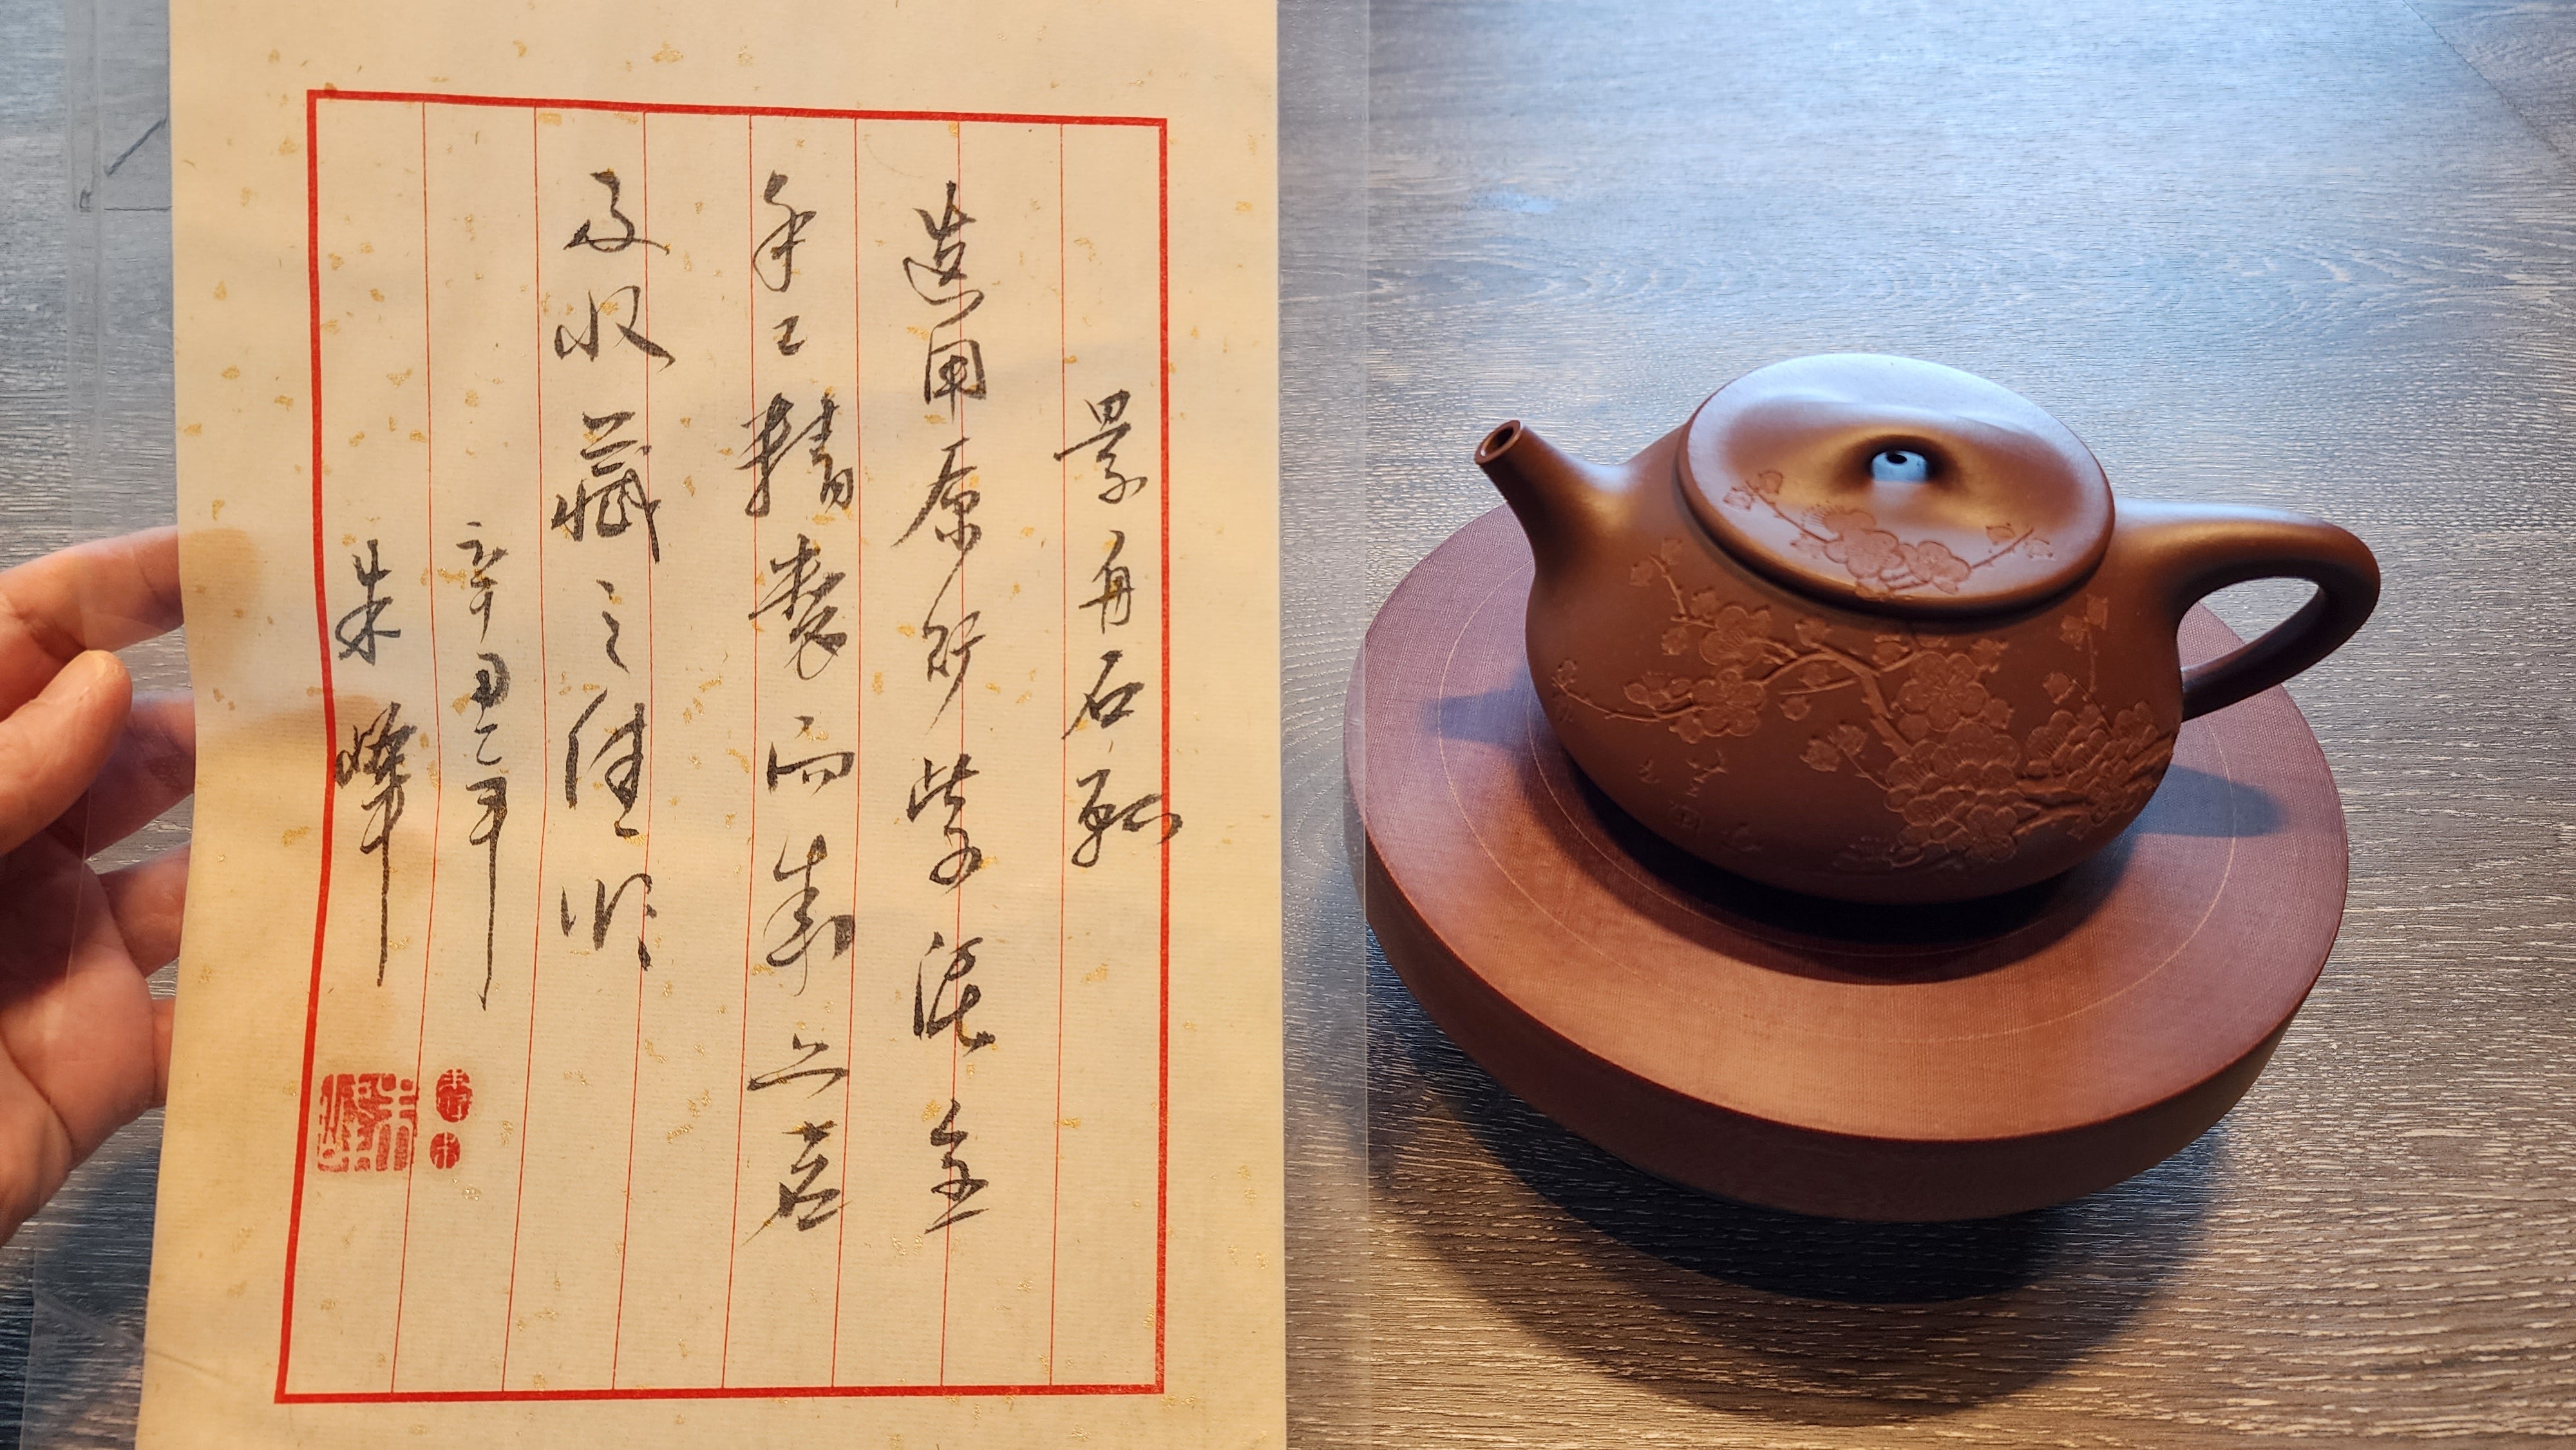 景舟石瓢
选用原矿紫泥全
手工精製而成 茗
及收藏之佳
辛丑年
朱峰